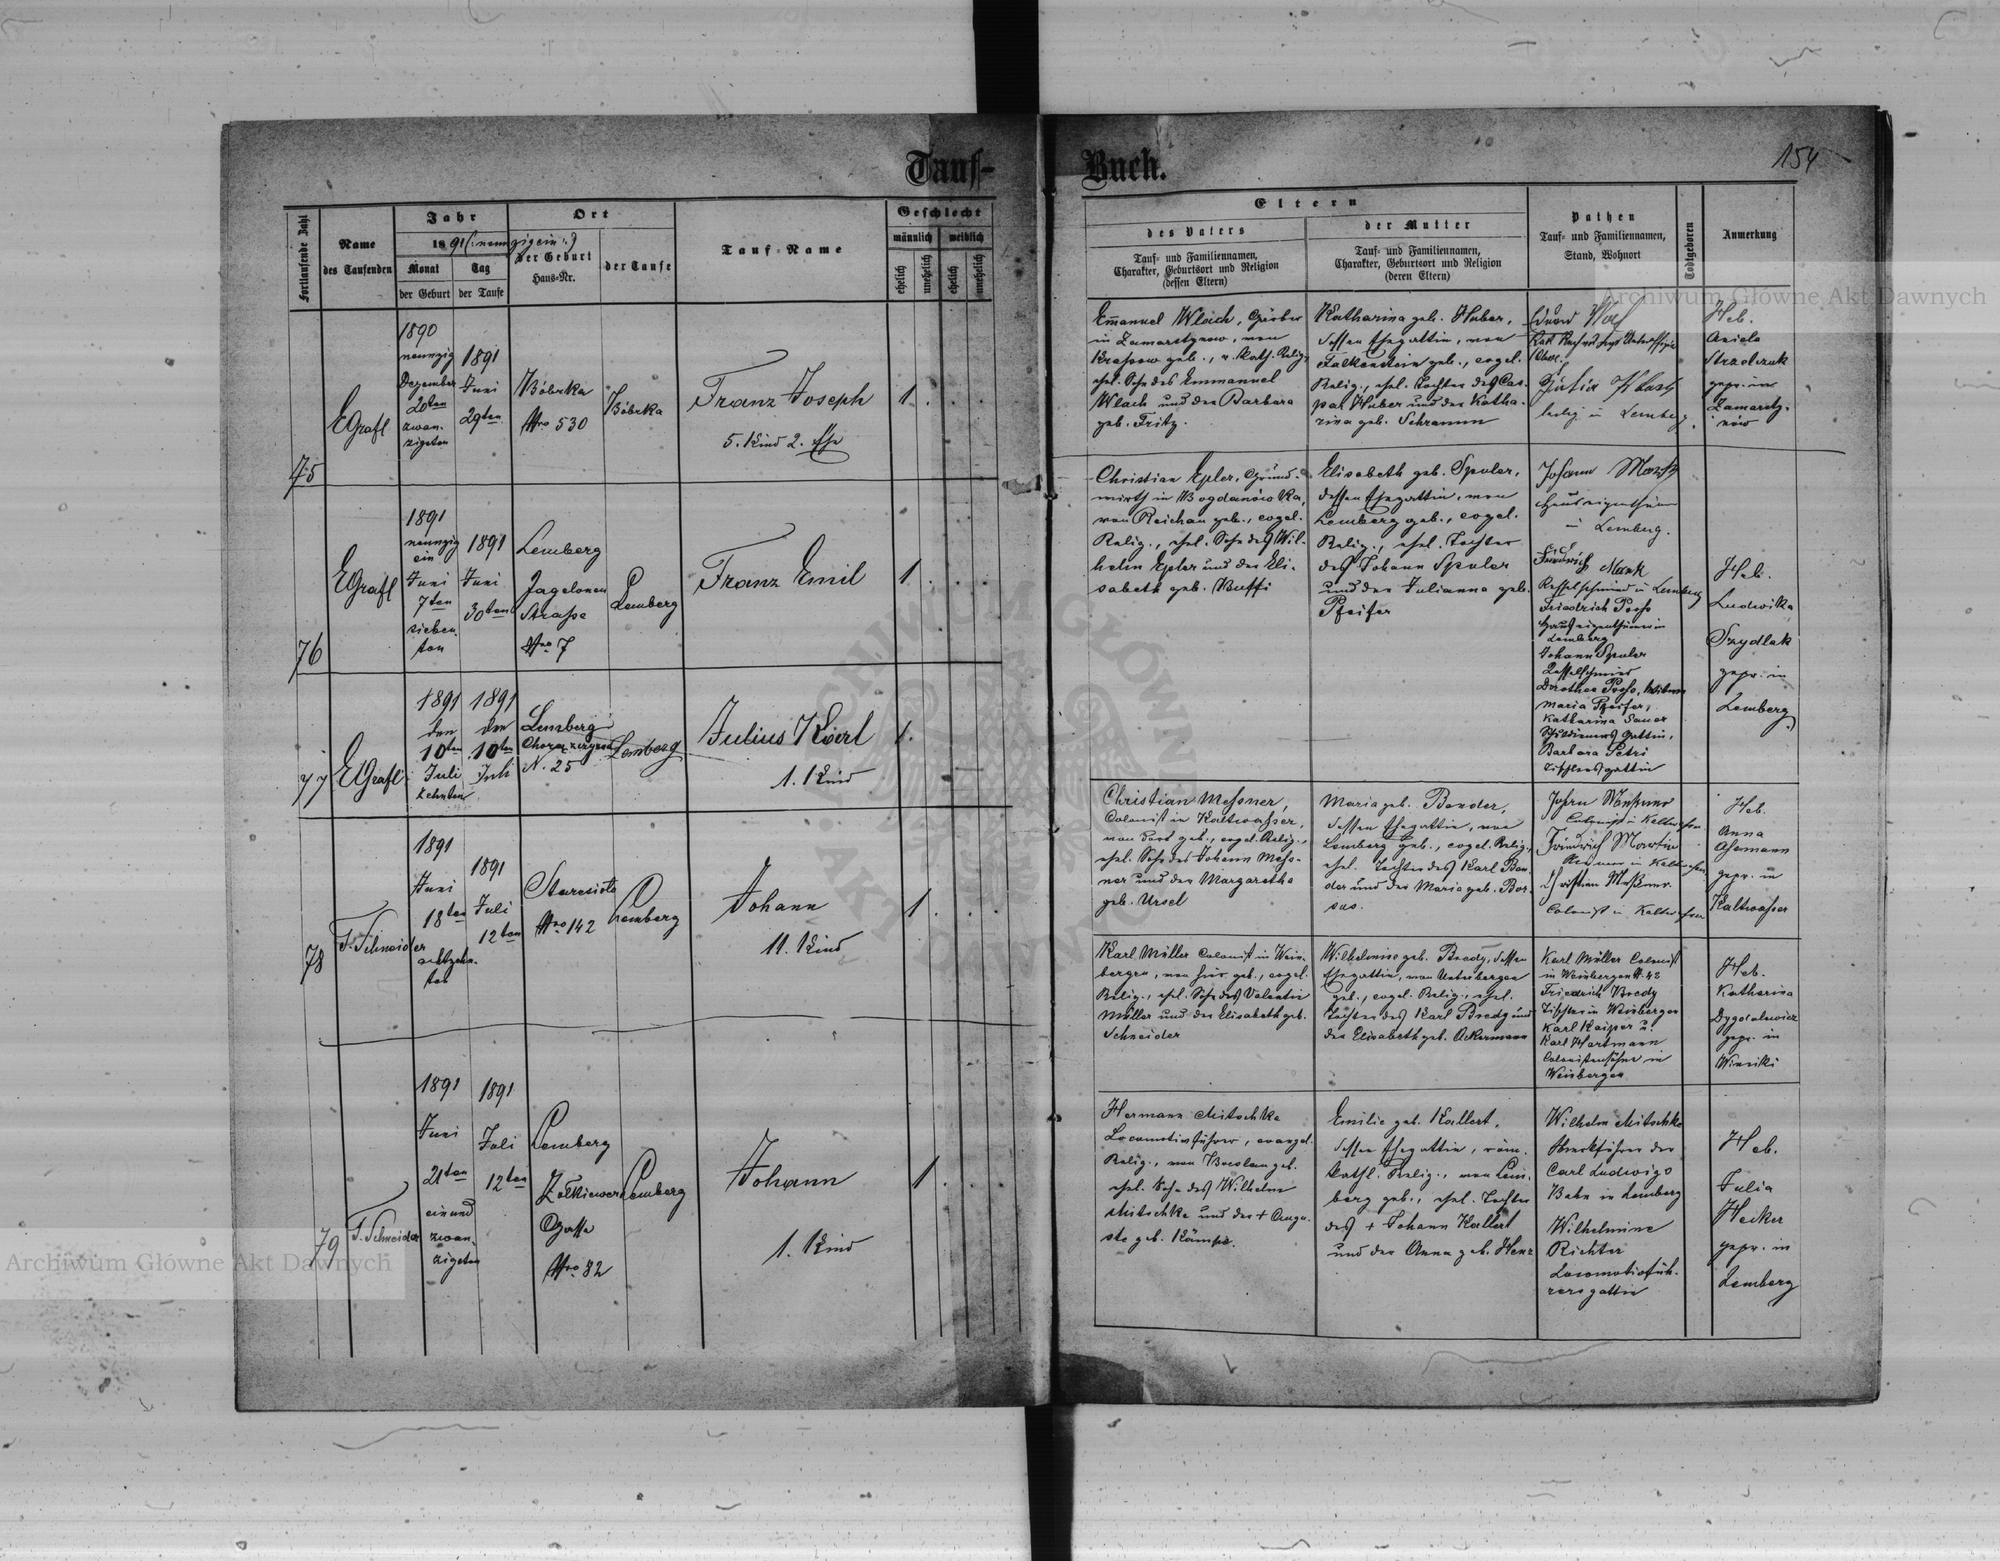 Tauf-
Fortlaufende Zahl
Name
des Taufenden
Jahr
1891 (: neunzigein :)
Monat
der Geburt
Tag
der Taufe
Ort
der Geburt
Haus-Nr.
der Taufe
Tauf-Name
Geschlecht
männlich
weiblich
ehelich
unehelich
ehelich
unehelich
75
EGrafl
1890
neunzig
Dezember
20ten
zwan-
zigsten
1891
Juni
29ten
Bóbrka
Nro 530
Bóbrka
Franz Joseph
5. Kind 2. Ehe
1
76
EGrafl
1891
neunzig
ein
Juni
7ten
sieben-
ten
1891
Juni
30ten
Lemberg
Jagelonen
Strasse
Nro 7
Lemberg
Franz Emil
1
77
EGrafl
1891
den
10ten
Juli
zehnten
1891
den
10ten
Juli
Lemberg
N. 25
Lemberg
Julius Karl
1. Kind
1.
78
F. Schneider
1891
Juni
18ten
achtzehn-
ten
1891
Juli
12ten
Nro 142
Lemberg
Johann
11. Kind
1
79
F. Schneider
1891
Juni
21ten
einund
zwan-
zigsten
1891
Juli
12ten
Lemberg
Żołkiewer
Gasse
Nro 82
Lemberg
Johann
1. Kind
1
Buch.
154
Eltern
des Vaters
Tauf- und Familiennamen,
Charakter, Geburtsort und Religion
(dessen Eltern)
der Mutter
Tauf- und Familiennamen,
Charakter, Geburtsort und Religion
(deren Eltern)
Pathen
Tauf- und Familiennamen,
Stand, Wohnort
Todtgeboren
Anmerkung
Emanuel Wlach, Gärber
in Zamarstynow, von
Krassow geb., r. kath. Relig.,
ehel. Sohn des Emmanuel
Wlach und der Barbara
geb. Fritz.
Katharina geb. Huber,
dessen Ehegattin, von
Falkenstein geb., evgel.
Relig., ehel. Tochter des Cas-
par Huber und der Katha-
rina geb. Schramm
Eduard
ledig in Lemberg
Heb.
Aniela
gepr. in
Zamarsty-
nów
Christian Epler, Grund-
wirth in Bogdanówka,
von Reichau geb., evgel.
Relig., ehel. Sohn des Wil-
helm Epler und der Eli-
sabeth geb. Buffi
Elisabeth geb. Spuler,
dessen Ehegattin, von
Lemberg geb., evgel.
Relig., ehel. Tochter
des Johann Spuler
und der Julianna geb.
Pfeifer
Johann
Hauseigenthümer
in Lemberg.
Friedrich Mank
Kesselschmied in Lemberg
Friedrich
Hauseigenthümer in
Lemberg
Johann Spuler
Kesselschmied
Dorothea
Maria Pfeifer,
Katharina Sauer
Gattin,
Barbara Petri
Tischlersgattin
Heb.
Ludwika
Szydlak
gepr. in
Lemberg
Christian Messner,
Colonist in Kaltwasser,
von dort geb., evgel. Relig.,
ehel. Sohn des Johann Mess-
ner und der Margaretha
geb. Ursel
Maria geb. Bender,
dessen Ehegattin, von
Lemberg geb., evgel. Relig.,
ehel. Tochter des Karl Ben-
der und der Maria geb. Bor-
sus.
Johann
Colonist in Kaltwasser
Friedrich Martin
in Kaltwasser
Christian Messner
Colonist in Kaltwasser
Heb.
Anna
gepr. in
Kaltwasser
Karl Müller Colonist in Wein-
bergen, von hier geb., evgel.
Relig., ehel. Sohn des Valentin
Müller und der Elisabeth geb.
Schneider
Wilhelmine geb. Bredy, dessen
Ehegattin, von Unterbergen
geb., evgel. Relig., ehel.
Tochter des Karl Bredy und
der Elisabeth geb. Ackermann
Karl Müller Colonist
in Weinbergen N. 42
Friedrich Bredy
Tischler in Weinbergen
Karl Kaiper u.
Karl Hartmann
Colonistensöhne in
Weinbergen
Heb.
Katharina
gepr. in
Winniki
Hermann Mitschke
Locomotivführer, evangel.
Relig., von Breslau geb.
ehel. Sohn des Wilhelm
Mitschke und der + Augu-
ste geb. Kämpe.
Emilie geb. Kallert,
dessen Ehegattin, röm.
kathl. Relig., von Lem-
berg geb., ehel. Tochter
des + Johann Kallert
und der Anna geb. Henz
Wilhelm Mitschke
Werkführer der
Carl Ludwigs
Bahn in Lemberg
Wilhelmine
Richter
Locomotivfüh-
rersgattin
Heb.
Julia
Heiker
gepr. in
Lemberg
Archiwum Główne Akt Dawnych
Archiwum Główne Akt Dawnych